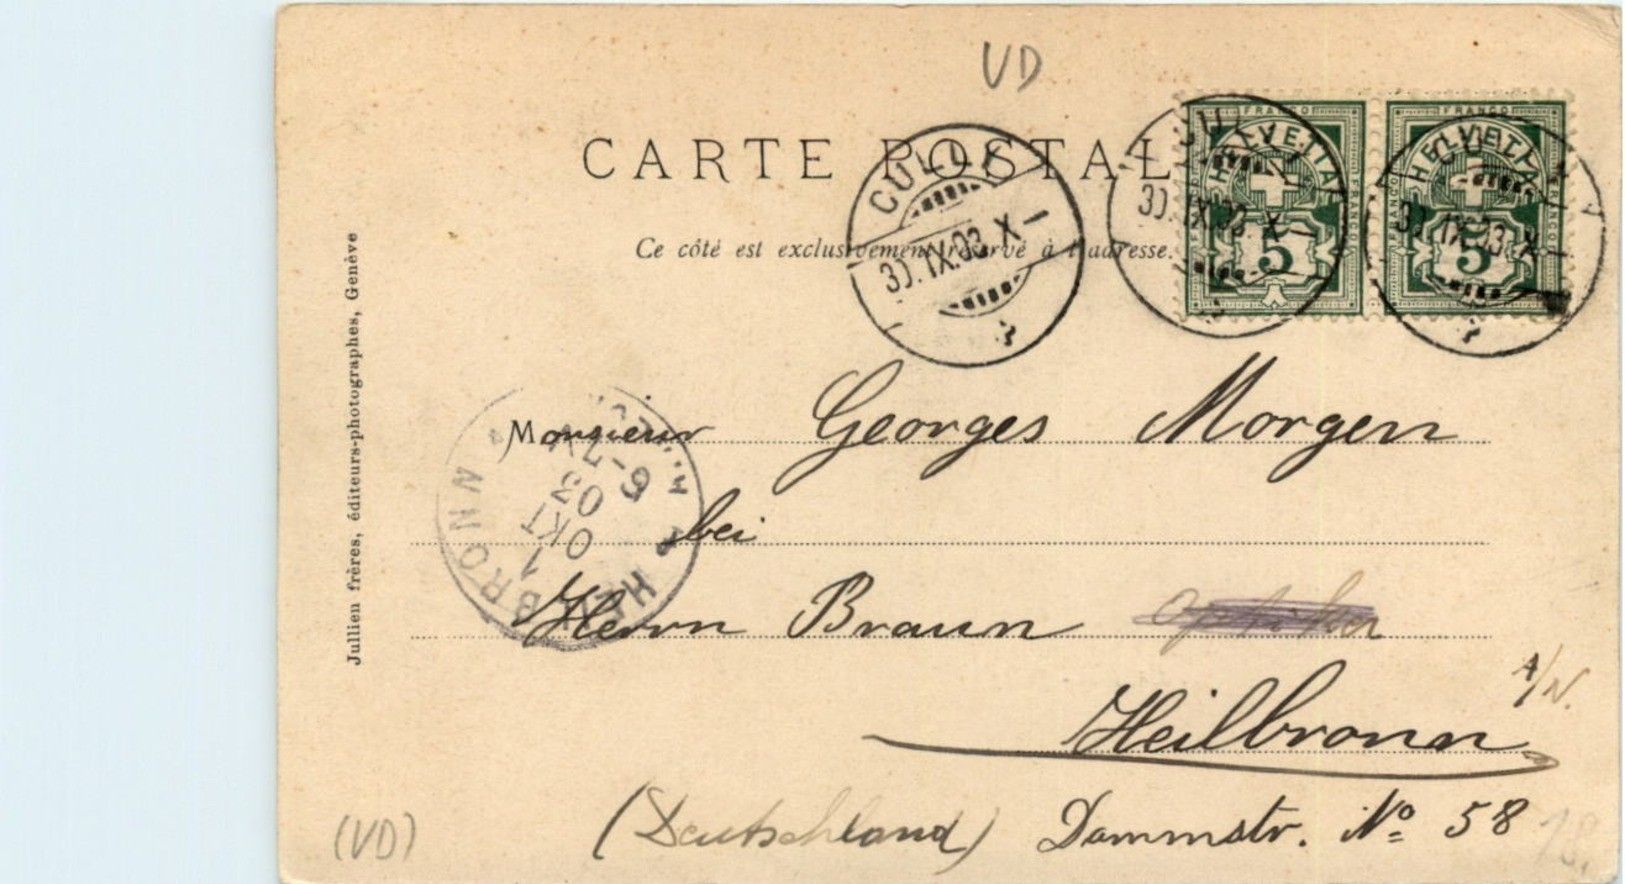 VD
CARTE POSTALE
Ce côté est exclusivement réservé à l'adresse.
CULLY
30.IX.03.X—
CULLY
30.IX.03.X—
CULLY
30.IX.03.X—
FRANCO
HELVETIA
5
FRANCO
HELVETIA
5
Jullien frères, éditeurs-photographes, Genève
Monsieur Georges Morgen
bei
Herrn Braun Optiker
A/N.
Heilbronn
(Deutschland) Dammstr. No 58
HEILBRONN
1
OKT
03
6-7
(VD)
18.